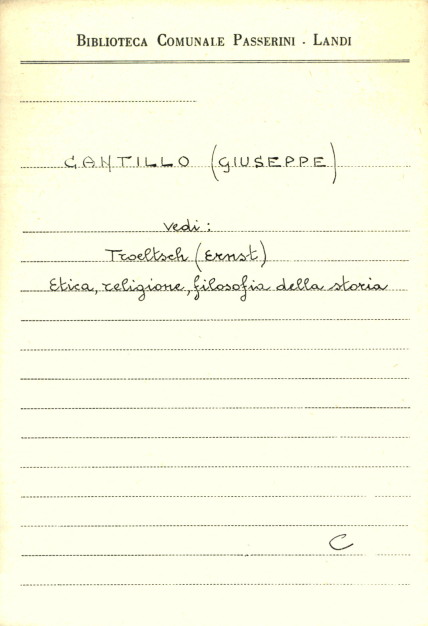 BIBLIOTECA COMUNALE PASSERINI - LANDI
CANTILLO (GIUSEPPE)
vedi:
Troeltsch (Ernst)
Etica, religione, filosofia della storia
C